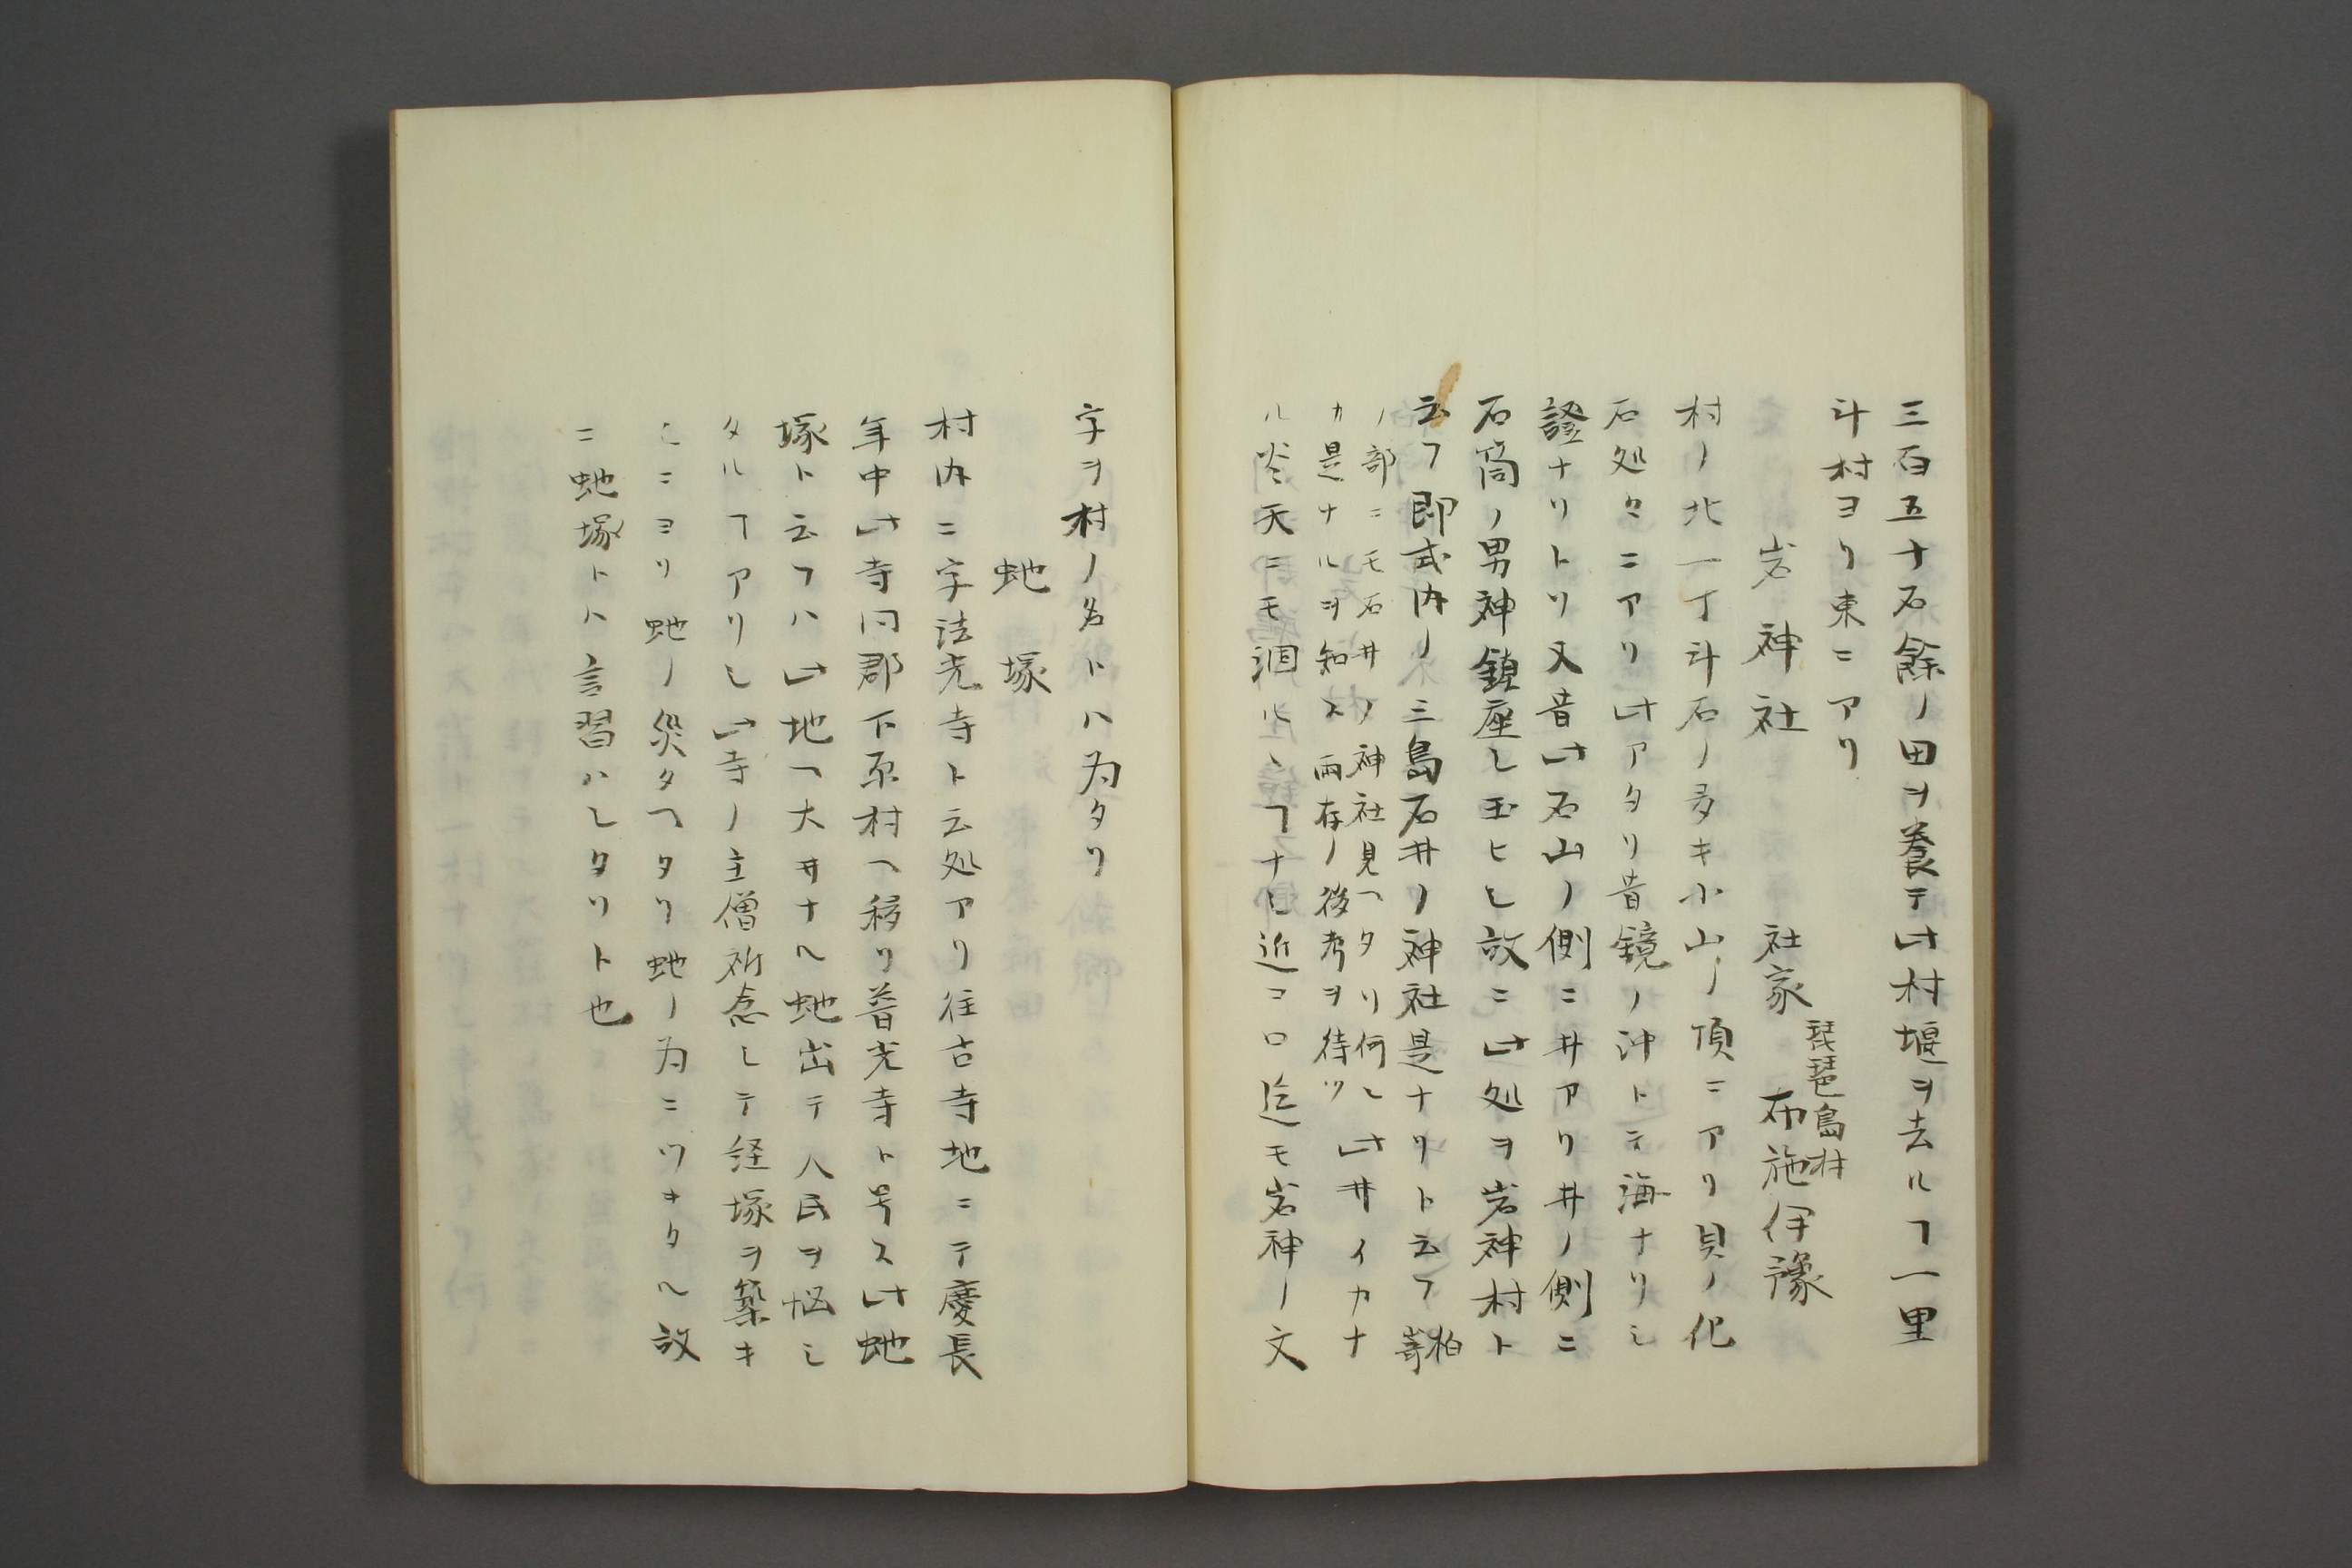 三石五十石餘ノ田ヲ養テ此村堰ヲ去ルヿ一里
斗村ヨリ東ニアリ
岩神社　社家　琵琶島村　布施伊豫
村ノ北一丁斗石ノ多キ小山ノ頂ニアリ貝ノ化
石処々ニアリ此アタリ昔鏡ノ沖トテ海ナリシ
證ナリトソ又昔此石山ノ側ニ井アリ井ノ側ニ
石筒ノ男神鎮座シ玉ヒシ故ニ此処ヲ岩神村ト
云フ即式内ノ三島石井ノ神社是ナリト云フ柏嵜
ノ部ニモ石井ノ神社見ヘタリ何レ此井イカナ
カ是ナルヲ知ス両存ノ後考ヲ待ツ
ル炎天ニモ涸ルヽヿナシ近コロ迄モ岩神ノ文
字ヲ村ノ名トハ為タリ
虵塚
村内ニ字法光寺ト云処アリ往古寺地ニテ慶長
年中此寺同郡下原村ヘ移リ普光寺ト号ス此虵
塚ト云フハ此地ヘ大井ナル虵出テ人民ヲ悩シ
タルヿアリシ此寺ノ主僧祈念シテ経塚ヲ築キ
シニヨリ虵ノ災タヘタリ虵ノ為ニツキタル故
ニ虵塚トハ言習ハシタリト也